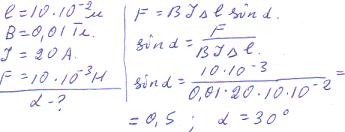 l = 10·10⁻² м
B = 0,01 Тл.
J = 20 А.
F = 10·10⁻³ Н
α - ?
F = B J Δ l sin α.
sin α = F / B J Δ l.
sin α = 10·10⁻³ / 0,01·20·10·10⁻² =
= 0,5 ; α = 30°